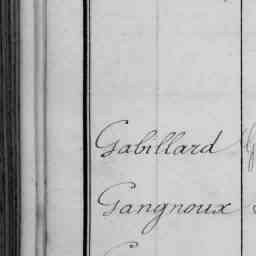 Gabillard
Gangnoux